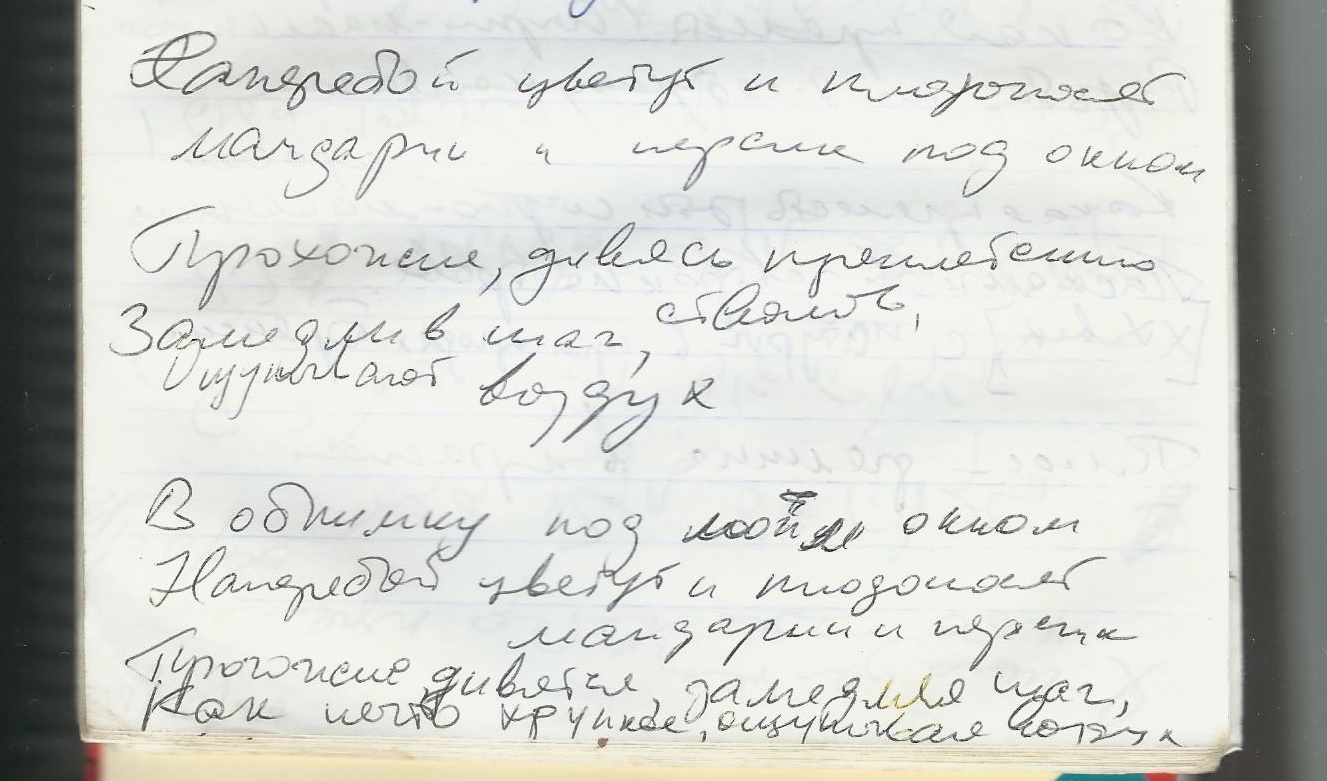 Наперебой цветут и плодоносят
мандарин и персик под окном
Прохожие, дивясь преплетению
стволов,
Замедлив шаг,
Ощупывают воздух
В обнимку под моим окном
Наперебой цветут и плодоносят
мандарин и персик
Прохожие дивятся, замедляя шаг,
Как нечто хрупкое, ощупывая воздух